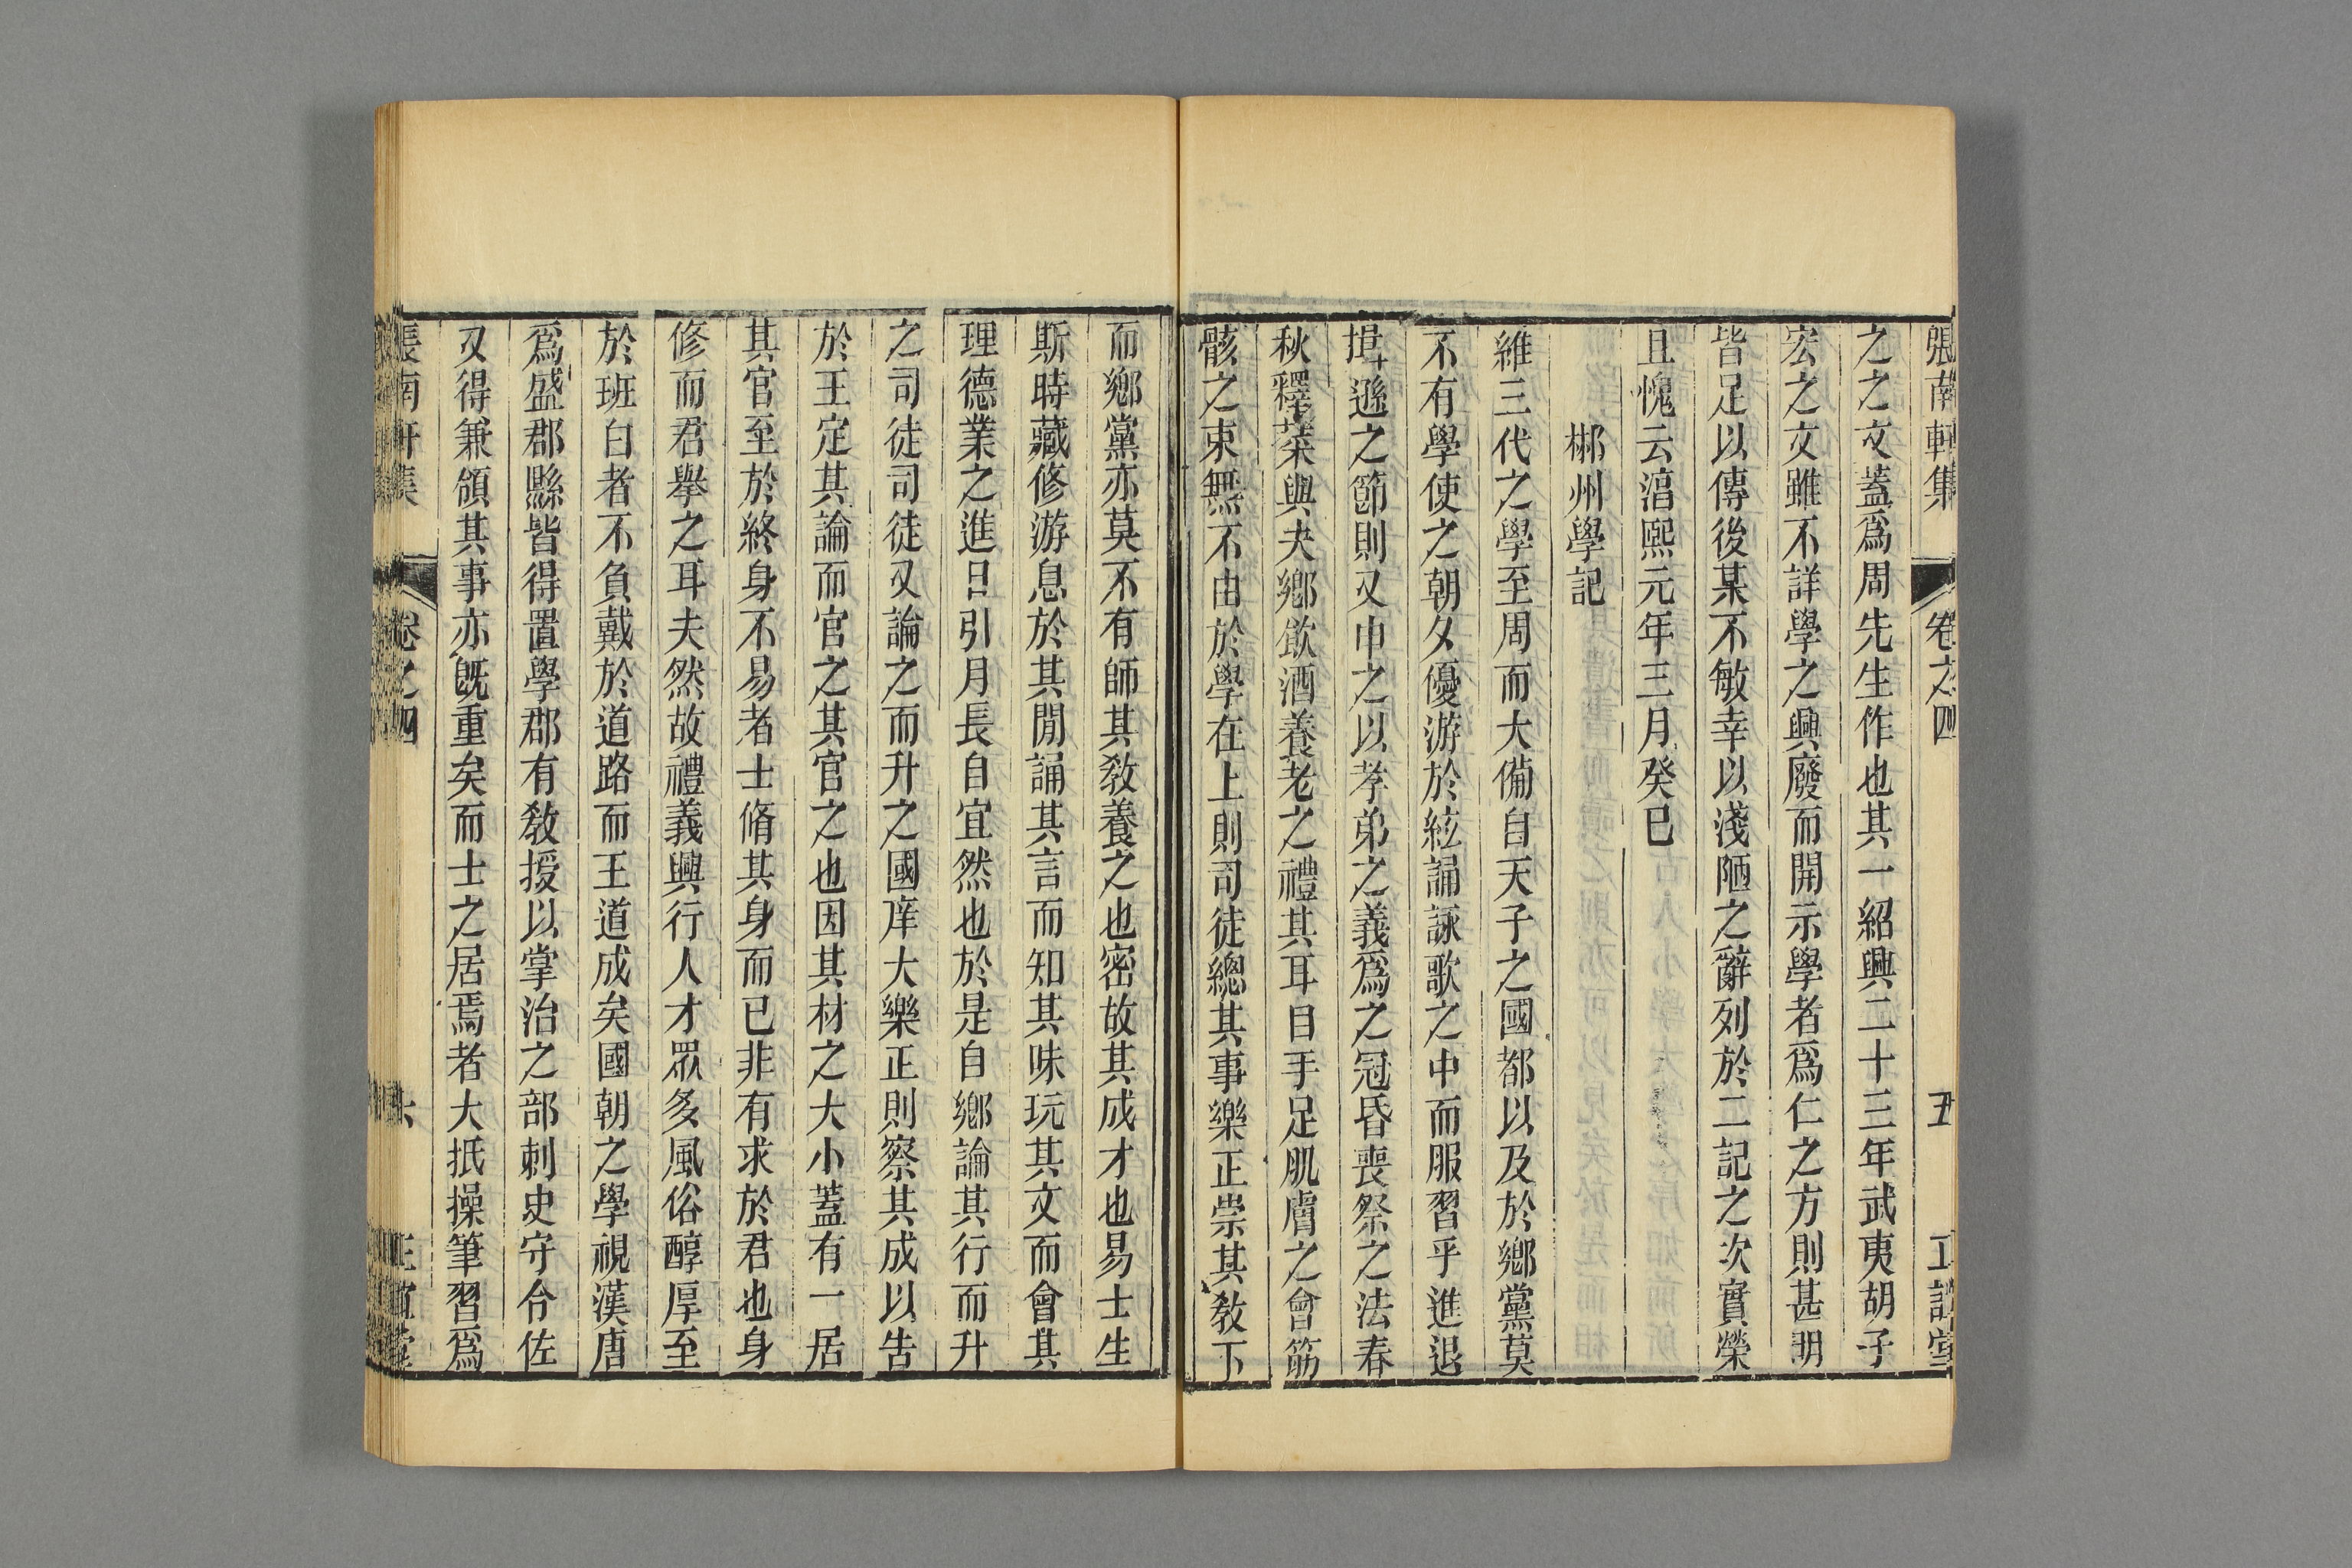 張南軒集 卷之四 五 正誼堂
之之文蓋爲周先生作也其一紹興二十三年武夷胡子
宏之文雖不詳學之興廢而開示學者爲仁之方則甚明
皆足以傳後某不敏幸以淺陋之辭列於二記之次實榮
且愧云淳熙元年三月癸巳
郴州學記
維三代之學至周而大備自天子之國都以及於鄉黨莫
不有學使之朝夕優游於絃誦詠歌之中而服習乎進退
揖遜之節則又申之以孝弟之義爲之冠昏喪祭之法春
秋釋菜與夫鄉飲酒養老之禮其耳目手足肌膚之會筋
骸之束無不由於學在上則司徒總其事樂正崇其敎下
而鄉黨亦莫不有師其敎養之也密故其成才也易士生
斯時藏修游息於其閒誦其言而知其味玩其文而會其
理德業之進日引月長自宜然也於是自鄉論其行而升
之司徒司徒又論之而升之國庠大樂正則察其成以告
於王定其論而官之其官之也因其材之大小蓋有一居
其官至於終身不易者士脩其身而已非有求於君也身
修而君舉之耳夫然故禮義興行人才眾多風俗醇厚至
於班白者不負戴於道路而王道成矣國朝之學視漢唐
爲盛郡縣皆得置學郡有敎授以掌治之部刺史守令佐
又得兼領其事亦旣重矣而士之居焉者大抵操筆習爲
張南軒集 卷之四 六 正誼堂